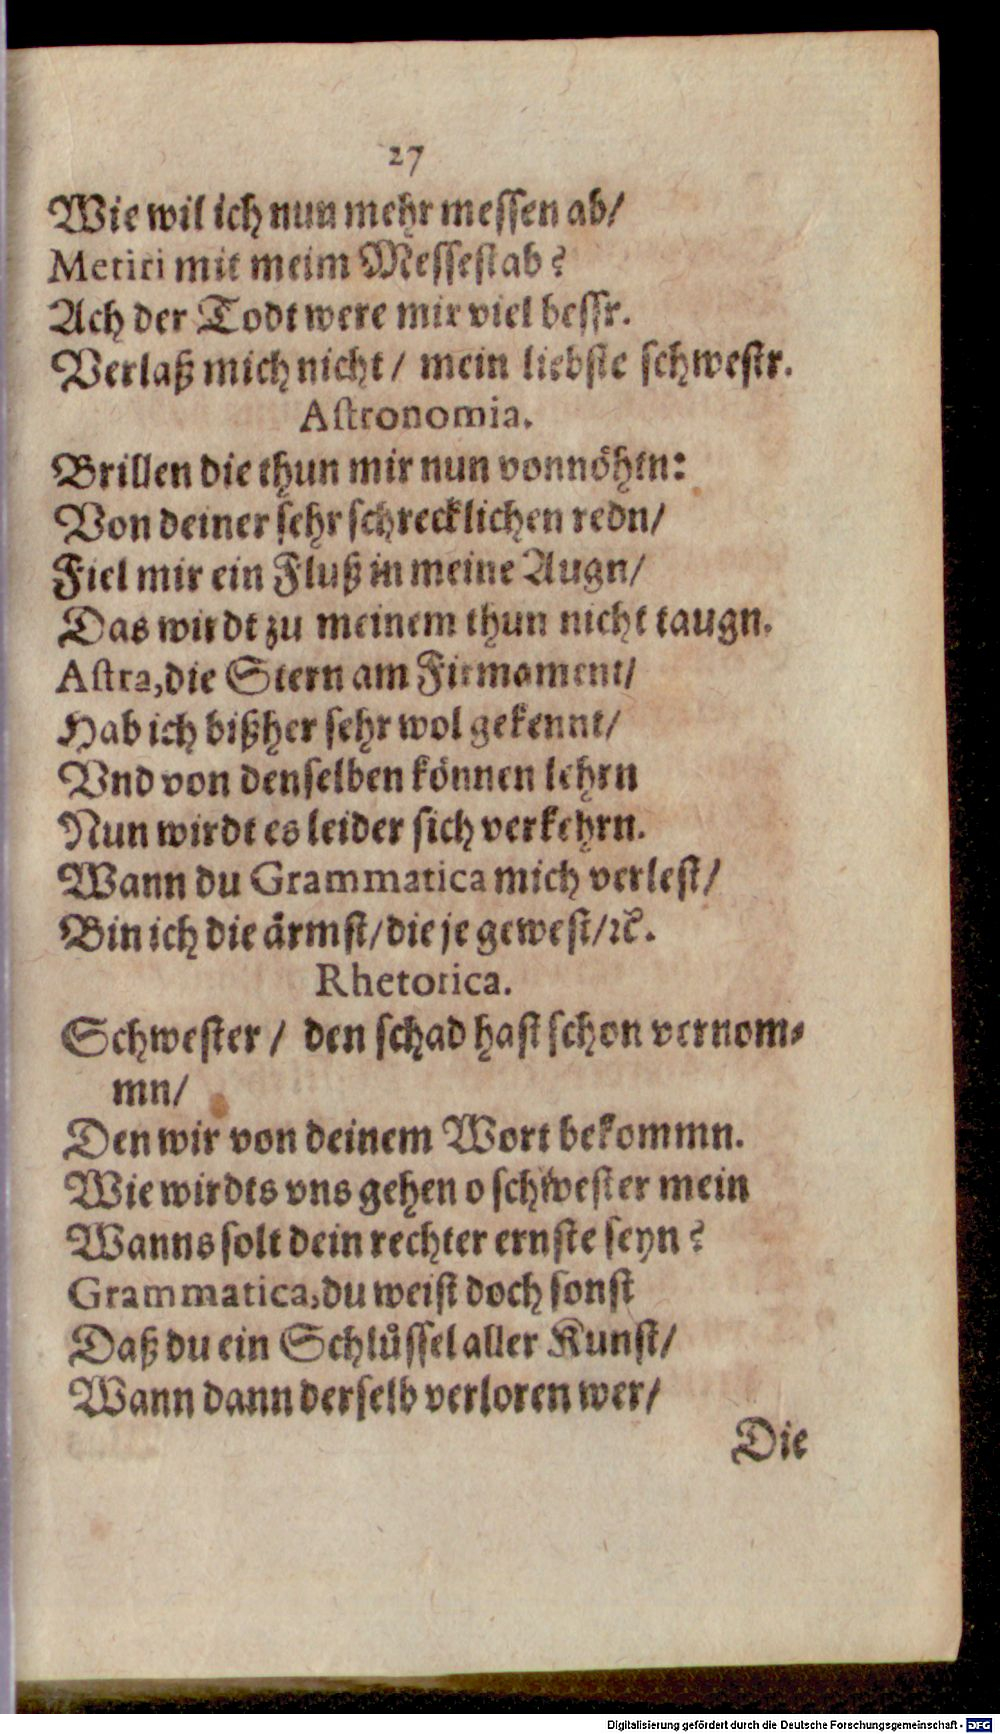 27
Wie wil ich nun mehr messen ab/
Metiri mit meim Messestab?
Ach der Todt were mir viel bessr.
Verlaß mich nicht/ mein liebste schwestr.
Astronomia.
Brillen die thun mir nun vonnöhtn:
Von deiner sehr schrecklichen redn/
Fiel mir ein Fluß in meine Augn/
Das wirdt zu meinem thun nicht taugn.
Astra, die Stern am Firmament/
Hab ich bißher sehr wol gekennt/
Vnd von denselben können lehrn
Nun wirdt es leider sich verkehrn.
Wann du Grammatica mich verlest/
Bin ich die ärmst/ die je gewest/ ꝛc.
Rhetorica.
Schwester/ den schad hast schon vernom-
mn/
Den wir von deinem Wort bekommn.
Wie wirdts vns gehen o schwester mein
Wanns solt dein rechter ernste seyn?
Grammatica, du weist doch sonst
Daß du ein Schlüssel aller Kunst/
Wann dann derselb verloren wer/
Die
Digitalisierung gefördert durch die Deutsche Forschungsgemeinschaft - DFG